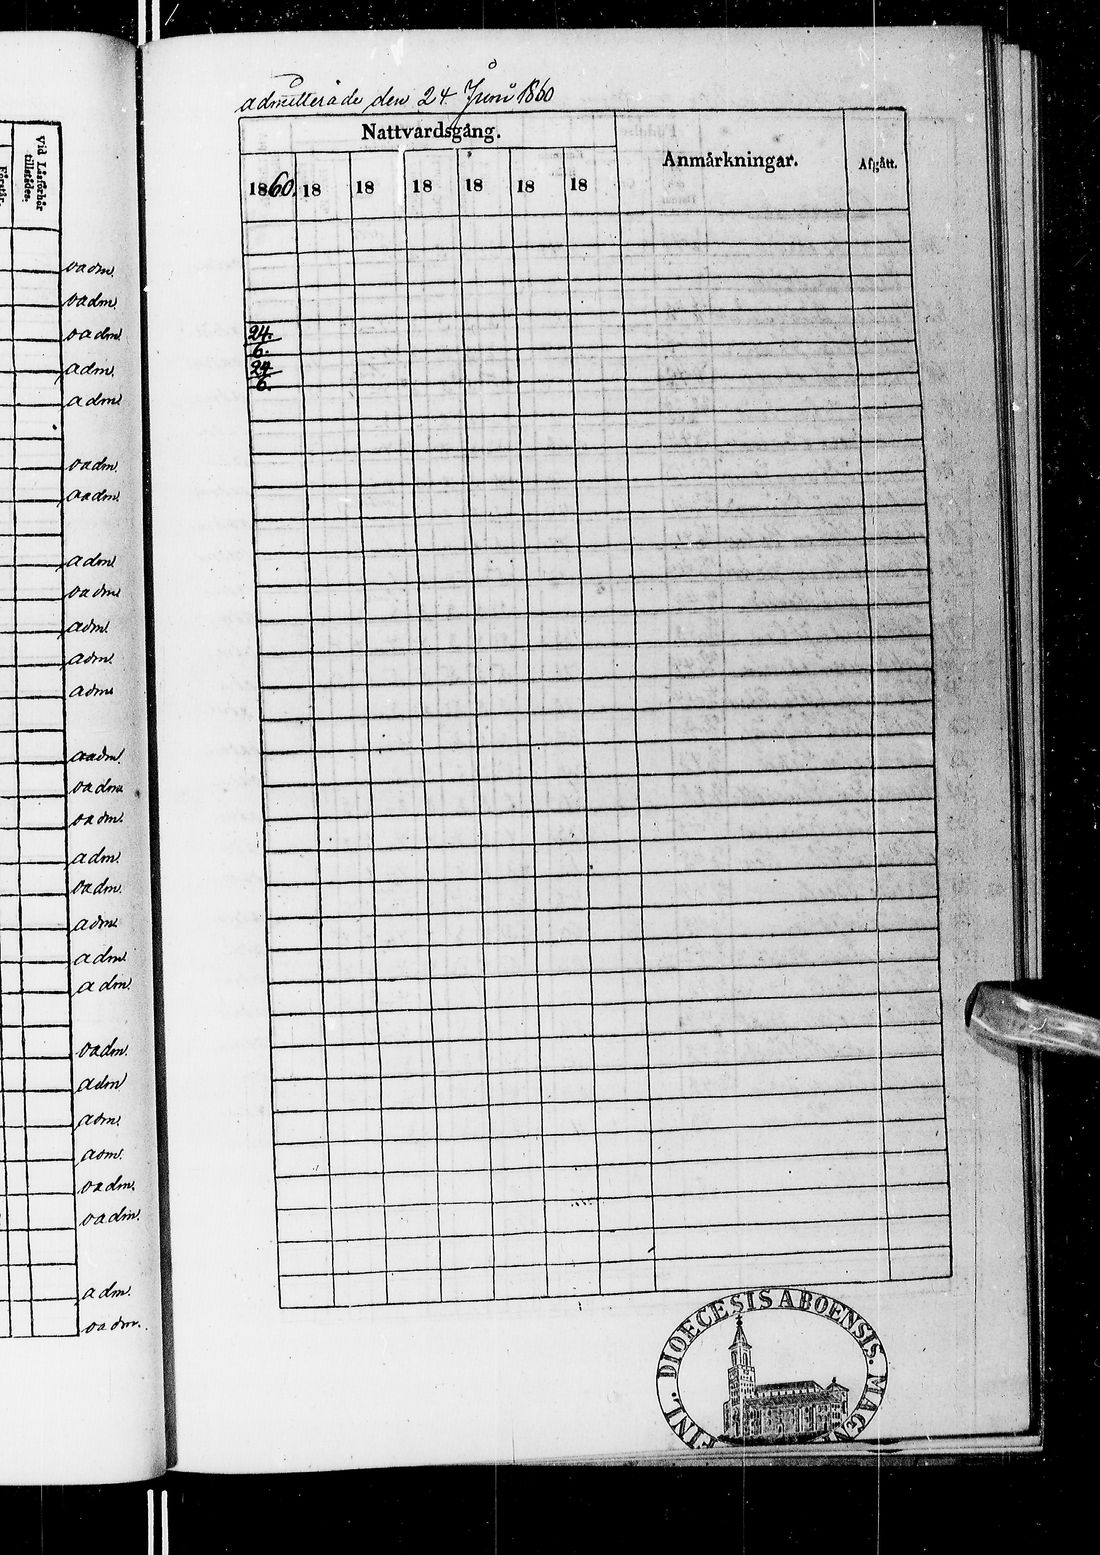 Förstår.
Vid Läsförhör
tillstädes.
oadm.
oadm.
oadm.
adm.
adm.
oadm.
oadm.
adm.
oadm.
adm.
adm.
adm.
oadm.
oadm.
oadm.
adm.
oadm.
adm.
adm.
adm.
oadm.
adm.
adm.
adm.
oadm.
oadm.
adm.
oadm.
admitterade den 24 Juni 1860
Nattvardsgång.
Anmärkningar.
Afgått.
1860. 18 18 18 18 18 18
24.
6.
24
6.
FINL. DIOECESIS ABOENSIS. MAGNI